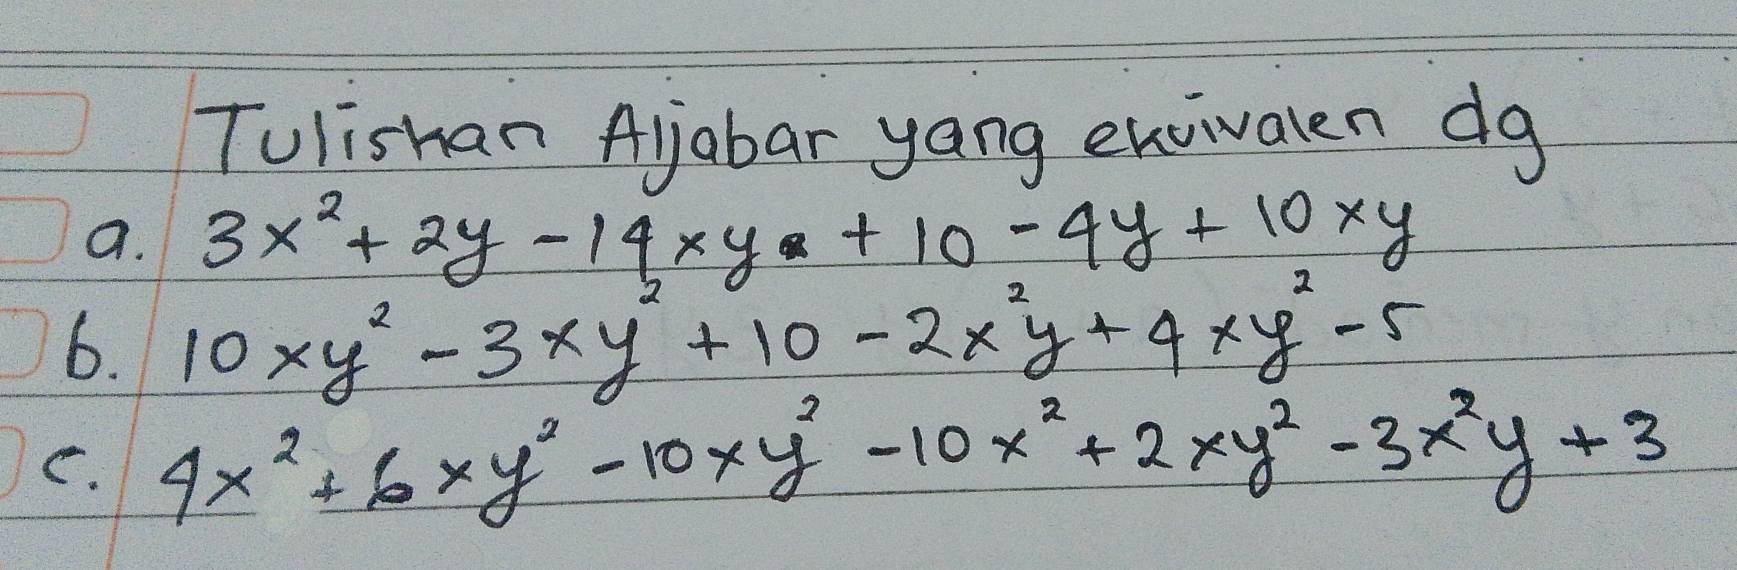 Tuliskan Aljabar yang ekuivalen dg
a. 3x² + 2y - 14xy + 10 - 4y + 10xy
b. 10xy² - 3xy² + 10 - 2x²y + 4xy² - 5
c. 4x² + 6xy² - 10xy² - 10x² + 2xy² - 3x²y + 3